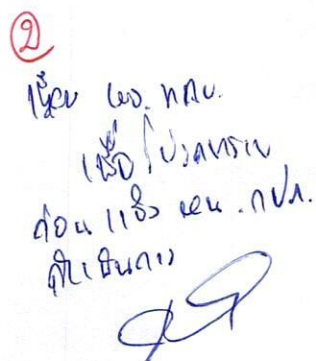 2
เรียน ผอ. ทสบ.
เพื่อโปรดทราบ
ก่อนแจ้ง ผอน. กปภ.
ดำเนินการ